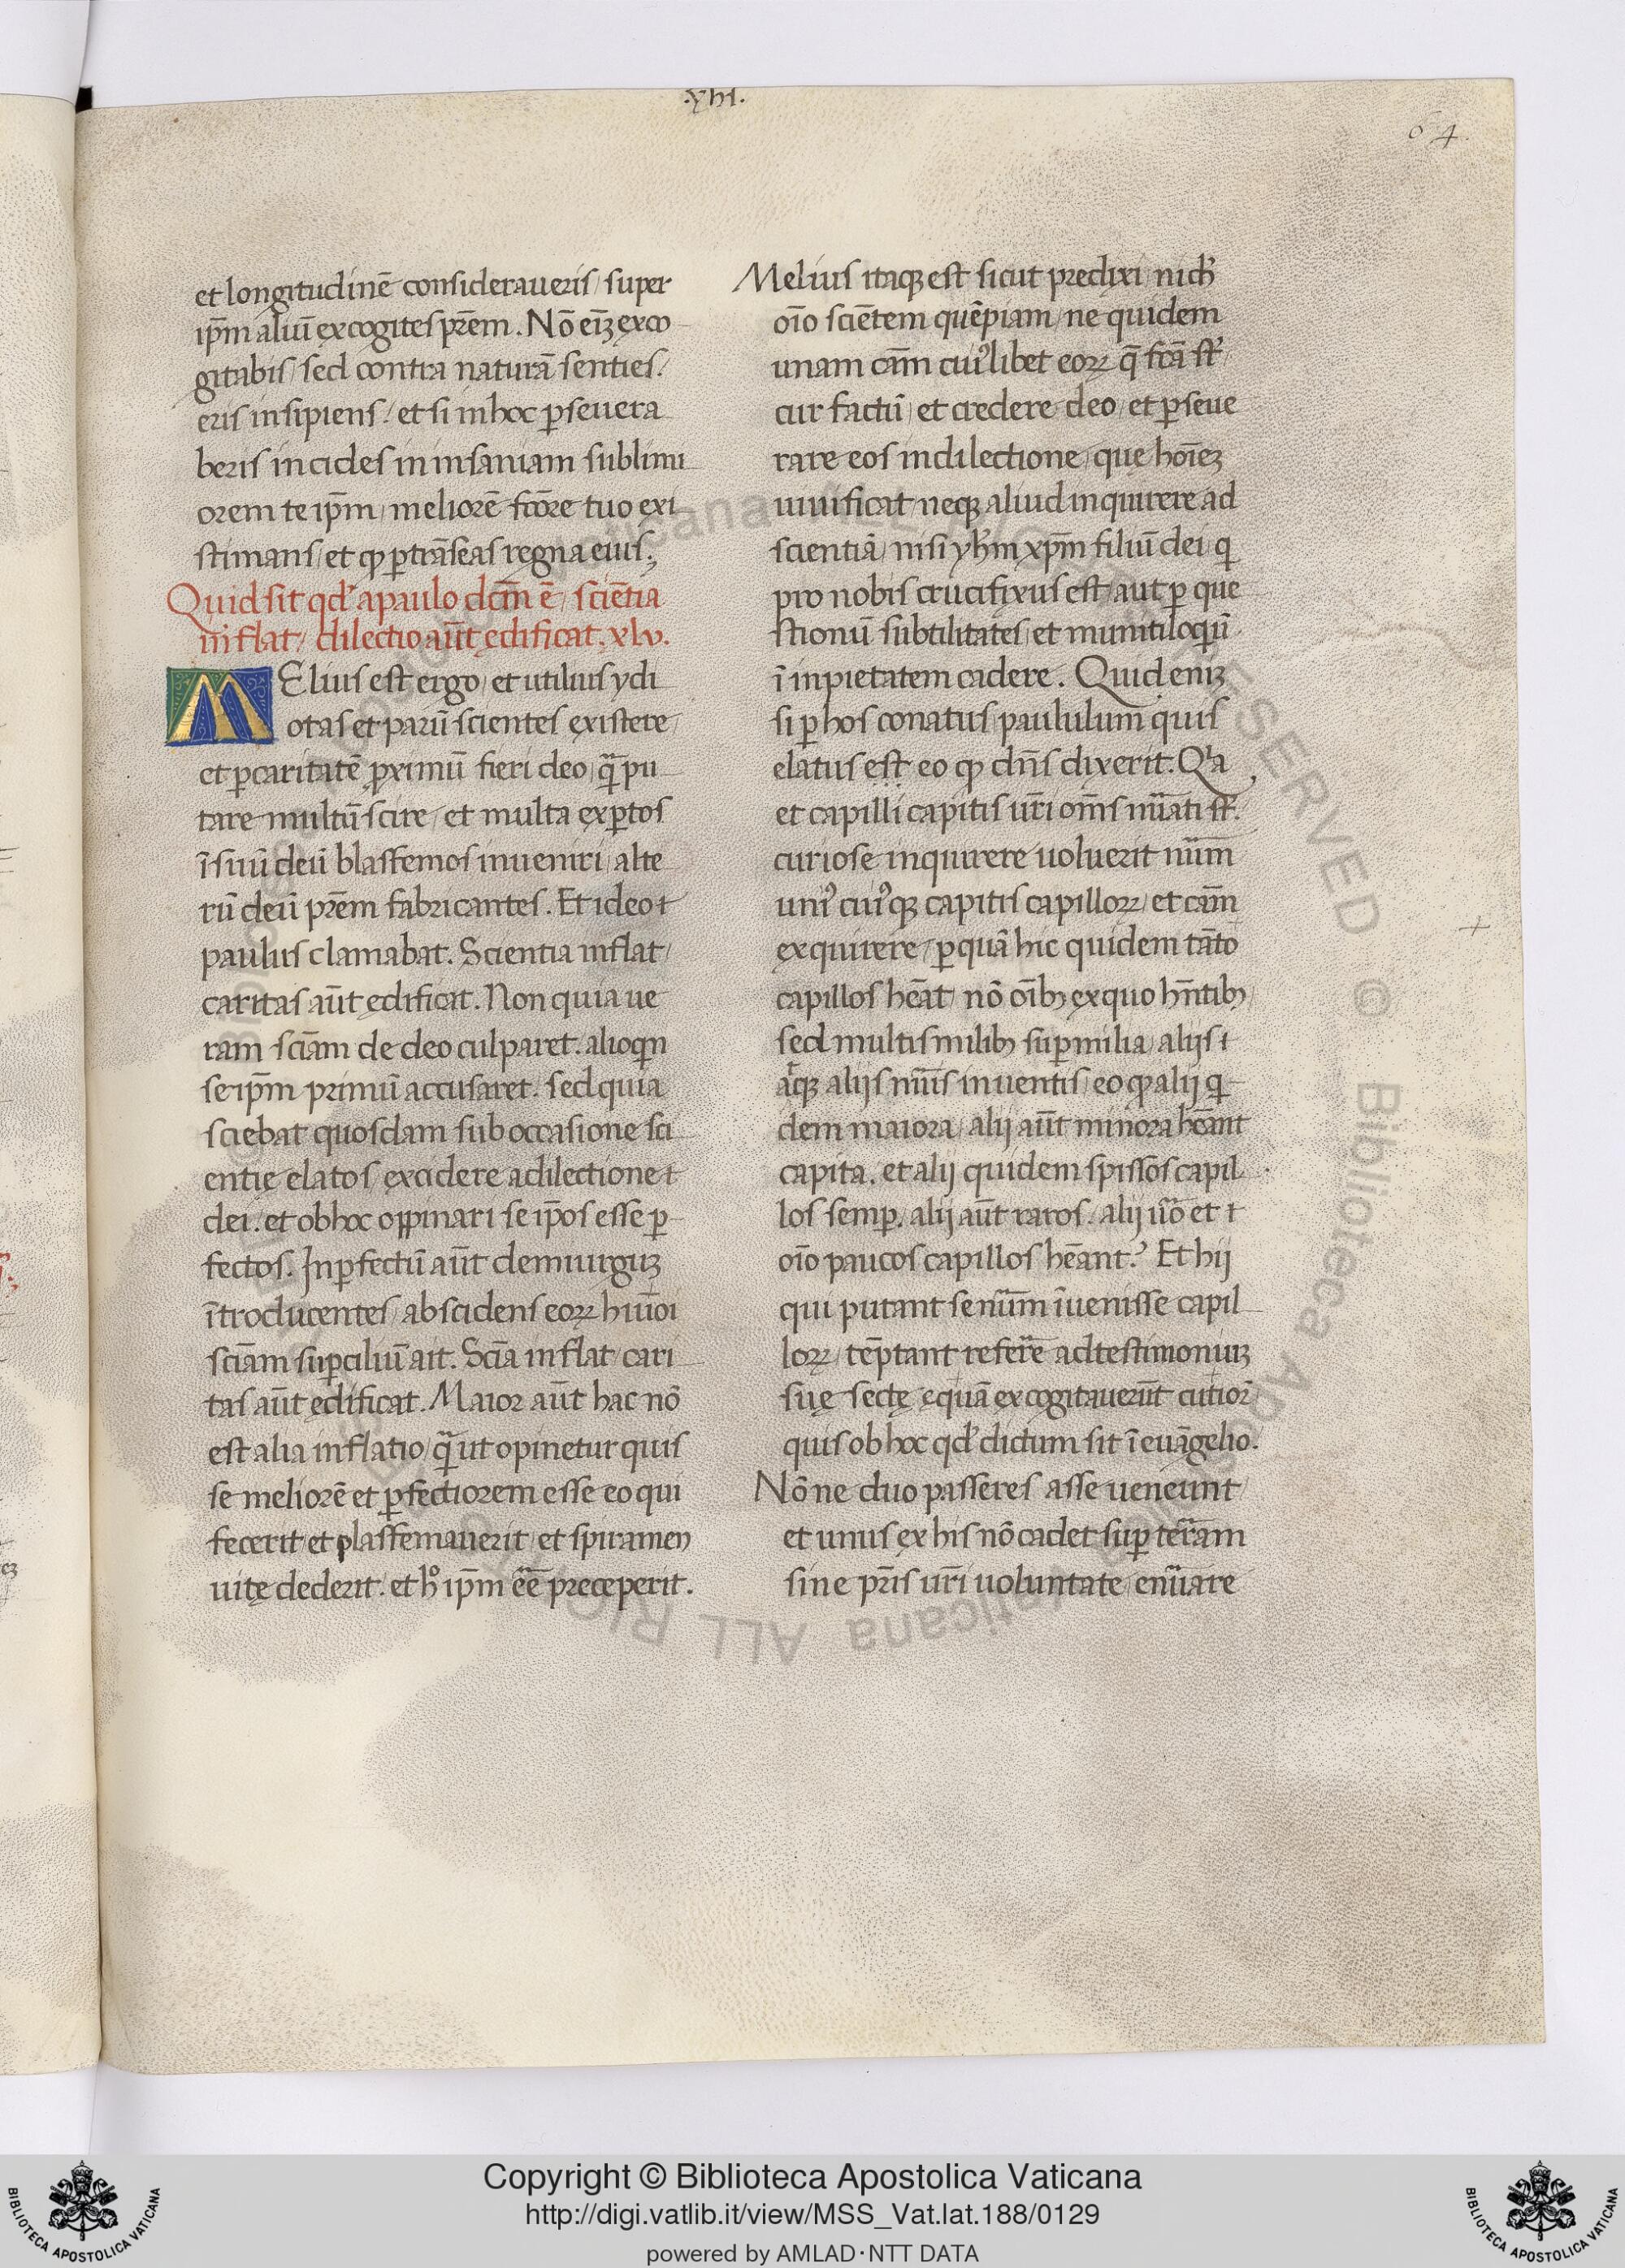 .xııı.
64.
et longitudinē consideraueris / super
ip̄m aliuī excogites pr̄em . Nō eīꝫ exco
gitabis / sed contra naturā senties /
eris insipiens / et si in hoc ꝑseuera
beris incides in insaniam sublimi
orem te ip̄m / meliorē fc̄ore tuo exi
stimans / et ꝙ ꝑtrāseas regna eius ;
Quid sit qd̓ a paulo dc̄m ē / sciētia
īnflat / dilectio aūt ędificat . xlv.
MElius est ergo / et utilius ydi
otas et parū scientes existere
et ꝑ caritatē ꝓximū fieri deo / qͣ̄ pu
tare multū scire / et multa exꝑtos
ī suū deū blasfemos inueniri / alte
rū deū pr̄em fabricantes . Et ideo
paulus clamabat . Scientia inflat /
caritas aūt ędificat . Non quia ue
ram sciām de deo culparet . alioqn
se ip̄m primū accusaret . sed quia
sciebat quosdam sub occasione sci
entię elatos excidere a dilectione
dei . et ob hoc oppinari se ip̄os esse ꝑ
fectos . Inꝑfectū aūt demiurguꝫ
ītroducentes / abscidens eoꝝ hiuīoi
sciām suꝑciliū ait . Sciā inflat / cari
tas aūt ędificat . Maior aūt hac nō
est alia inflatio / qͣ̄ ut opinetur quis
se meliorē et ꝑfectiorem esse eo qui
fecerit et plasfemauerit / et spiramen
uitę dederit . et h̊ ip̄m eē̄ preceperit .
Melius itaqꝫ est sicut predixi / nich̓
oīo sciētem quēpiam / ne quidem
unam cām cuiꝰlibet eoꝝ q̄ fcā st̄ /
cur factū / et credere deo / et ꝑseue
rare eos in dilectione / que hoīeꝫ
uiuificat / neqꝫ aliud inquirere ad
scientiā / nisi yħm xp̄m filiū dei / q
pro nobis crucifixus est / aut ꝑ que
stionū subtilitates / et munitiloqiū
ī inpietatem cadere . Quid eniꝫ
si ꝑ hos conatus / paululum quis
elatus est eo ꝙ dn̄s dixerit . Qa
et capilli capitis ur̄i om̄s nūati st̄ .
curiose inquirere uoluerit nūm
uniꝰ cuiꝰqꝫ capitis capilloꝝ / et cām
exquirere / ꝑ quā hic quidem tāto
capillos hēat / nō oībꝫ ex quo hn̄tibꝫ /
sed multis milibꝫ suꝑ milia / alijs
atqꝫ alijs nūis inuentis / eo ꝙ alij q
dem maiora / alij aūt minora hēant
capita . et alij quidem spissos capil
los semꝑ . alij aūt raros . alij ūo et
oīo paucos capillos hēant ? Et hij
qui putant se nūm īuenisse capil
loꝝ / tēptant referre ad testimoniuꝫ
suę sectę quā excogitauerūt cutior̄
quis ob hoc qd̓ dictum sit ī euāgelio .
Nōne duo passeres asse ueneunt /
et unus ex his nō cadet suꝑ terram
sine pr̄is ur̄i uoluntate / enūare
Copyright © Biblioteca Apostolica Vaticana
http://digi.vatlib.it/view/MSS_Vat.lat.188/0129
powered by AMLAD·NTT DATA
BIBLIOTECA APOSTOLICA VATICANA
BIBLIOTECA APOSTOLICA VATICANA